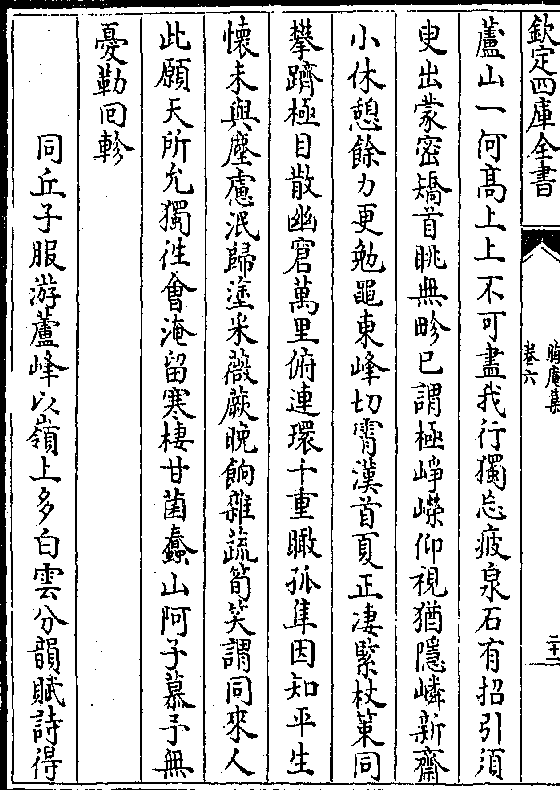 欽定四庫全書
晦庵集
卷六
二十一
蘆山一何髙上上不可盡我行獨忘疲泉石有招引須
臾出蒙密矯首眺無畛已謂極崢嶸仰視猶隱嶙新齋
小休憩餘力更勉黽東峰切霄漢首夏正凄緊杖䇿同
攀躋極目散幽窘萬里俯連環千重瞰孤隼因知平生
懷未與塵慮泯歸塗采薇蕨晚餉雜蔬筍笑謂同來人
此願天所允獨徃會淹留寒棲甘菌蠢山阿子慕予無
憂勒回軫
同丘子服游蘆峰以嶺上多白雲分韻賦詩得